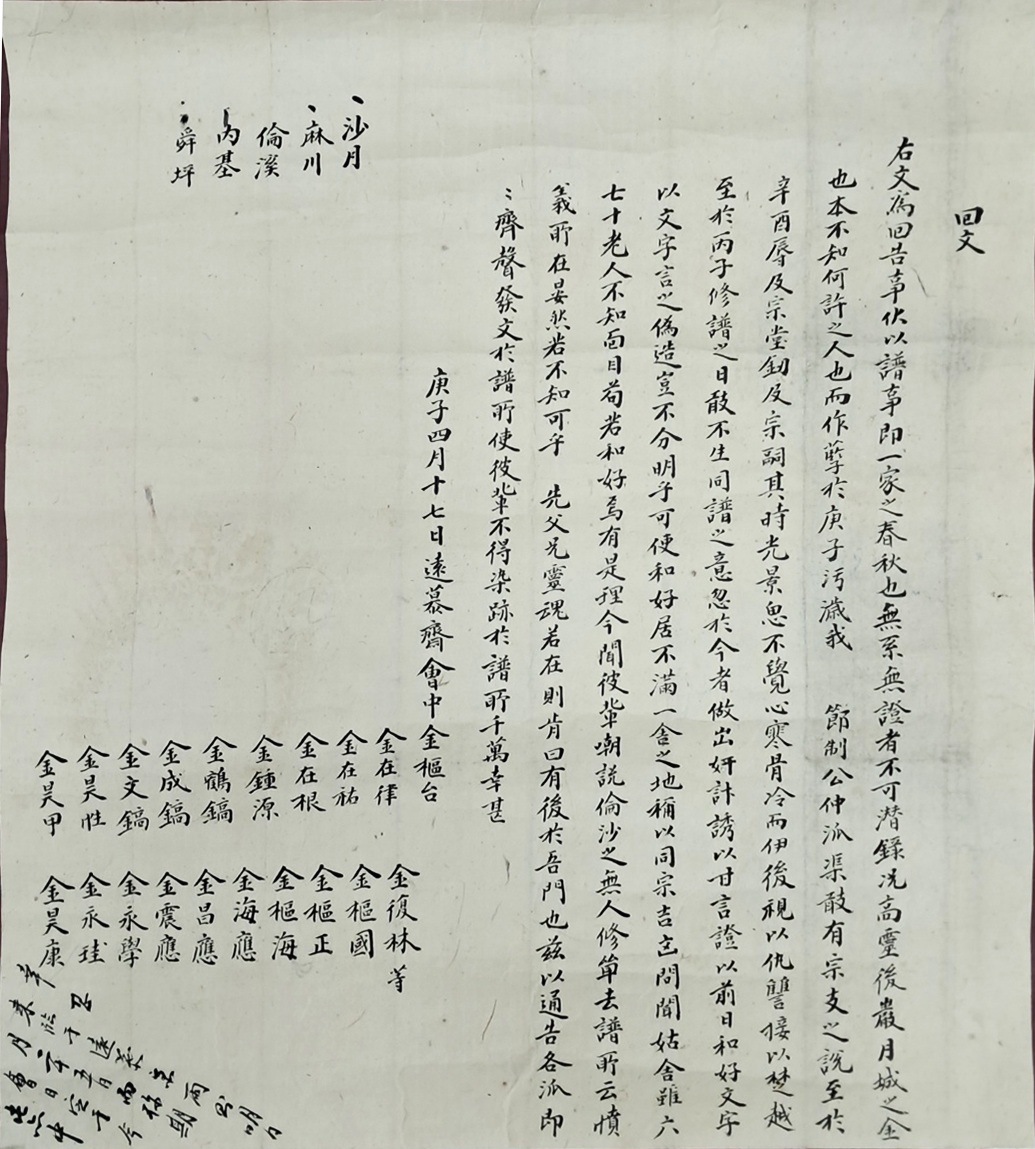 回文
右文爲回告事伏以譜事即一家之春秋也無系無證者不可潛錄況高靈後巖月城之金
也本不知何許之人也而作孽於庚子汚濊我 節制公仲派渠敢有宗支之說至於
辛酉辱及宗堂釰及宗嗣其時光景思不覺心寒骨冷而伊後視以仇讐接以楚越
至於丙子修譜之日敢不生同譜之意忽於今者做出奸計誘以甘言證以前日和好文字
以文字言之僞造豈不分明乎可使和好居不滿一舍之地稱以同宗吉凶問聞姑舍雖六
七十老人不知面目苟若和好焉有是理今聞彼輩嘲說倫沙之無人修單去譜所云憤
義所在晏然若不知可乎 先父兄靈魂若在則肯曰有後於吾門也玆以通告各派即
〻齊聲發文於譜所使彼輩不得染跡於譜所千萬幸甚
庚子四月十七日遠慕齋會中
金樞台
金在律
金在祐
金在根
金鍾源
金鶴鎬
金成鎬
金文鎬
金昊性
金昊甲
金復林 等
金樞國
金樞正
金樞海
金海應
金昌應
金震應
金永學
金永珪
金昊康
沙月
麻川
倫溪
內基
舜坪